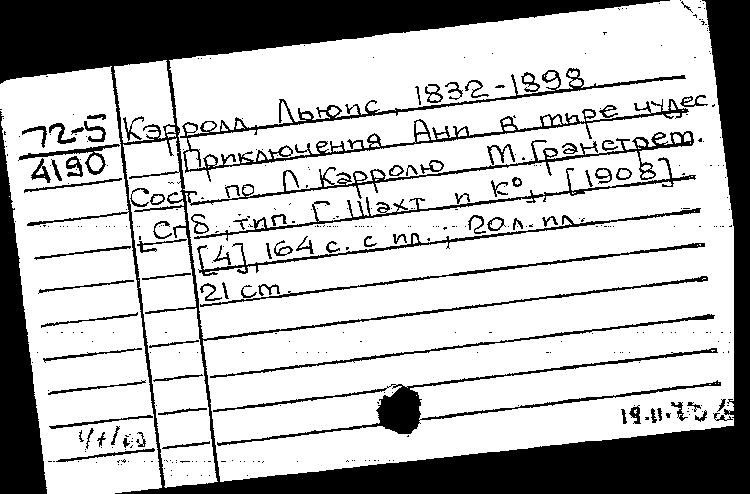 72-5 Кэрролл, Льюис, 1832-1898.
4190 Приключения Ани в мире чудес.
Сост. по Л. Кэрролю М. Гранстрем.
Спб., тип. Г. Шахт и К°, [1908].
[4], 164 с. с ил.; 20 л. ил.
21 cm.
19.11.